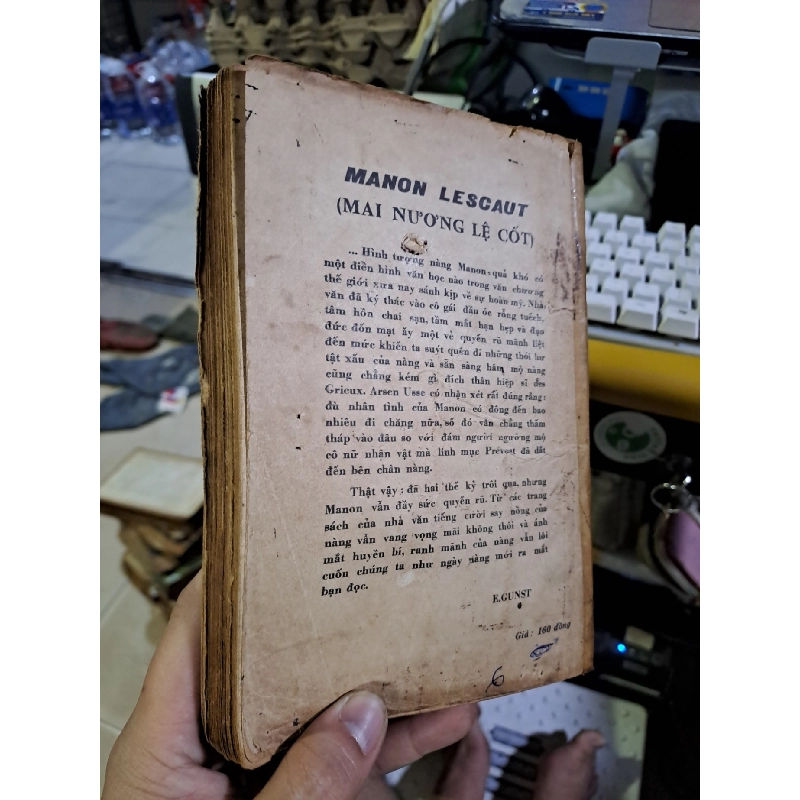 MANON LESCAUT
(MAI NƯƠNG LỆ CỐT)
... Hình tượng nàng Manon: quả khó có
một điển hình văn học nào trong văn chương
thế giới xưa nay sánh kịp về sự hoàn mỹ. Nhà
văn đã ký thác vào cô gái đầu óc rỗng tuếch,
tâm hồn chai sạn, tầm mắt hạn hẹp và đạo
đức đốn mạt ấy một vẻ quyến rũ mãnh liệt
đến mức khiến ta suýt quên đi những thói hư
tật xấu của nàng và sẵn sàng hâm mộ nàng
cũng chẳng kém gì đích thân hiệp sĩ des
Grieux. Arsen Usse có nhận xét rất đúng rằng:
dù nhân tình của Manon có đông đến bao
nhiêu đi chăng nữa, số đó vẫn chẳng thấm
tháp vào đâu so với đám người ngưỡng mộ
cô nữ nhân vật mà linh mục Prévost đã dắt
đến bên chân nàng.
Thật vậy: đã hai thế kỷ trôi qua, nhưng
Manon vẫn đầy sức quyến rũ. Từ các trang
sách của nhà văn tiếng cười say nồng của
nàng vẫn vang vọng mãi không thôi và ánh
mắt huyền bí, ranh mãnh của nàng vẫn lôi
cuốn chúng ta như ngày nàng mới ra mắt
bạn đọc.
E.GUNST
Giá: 160 đồng
6